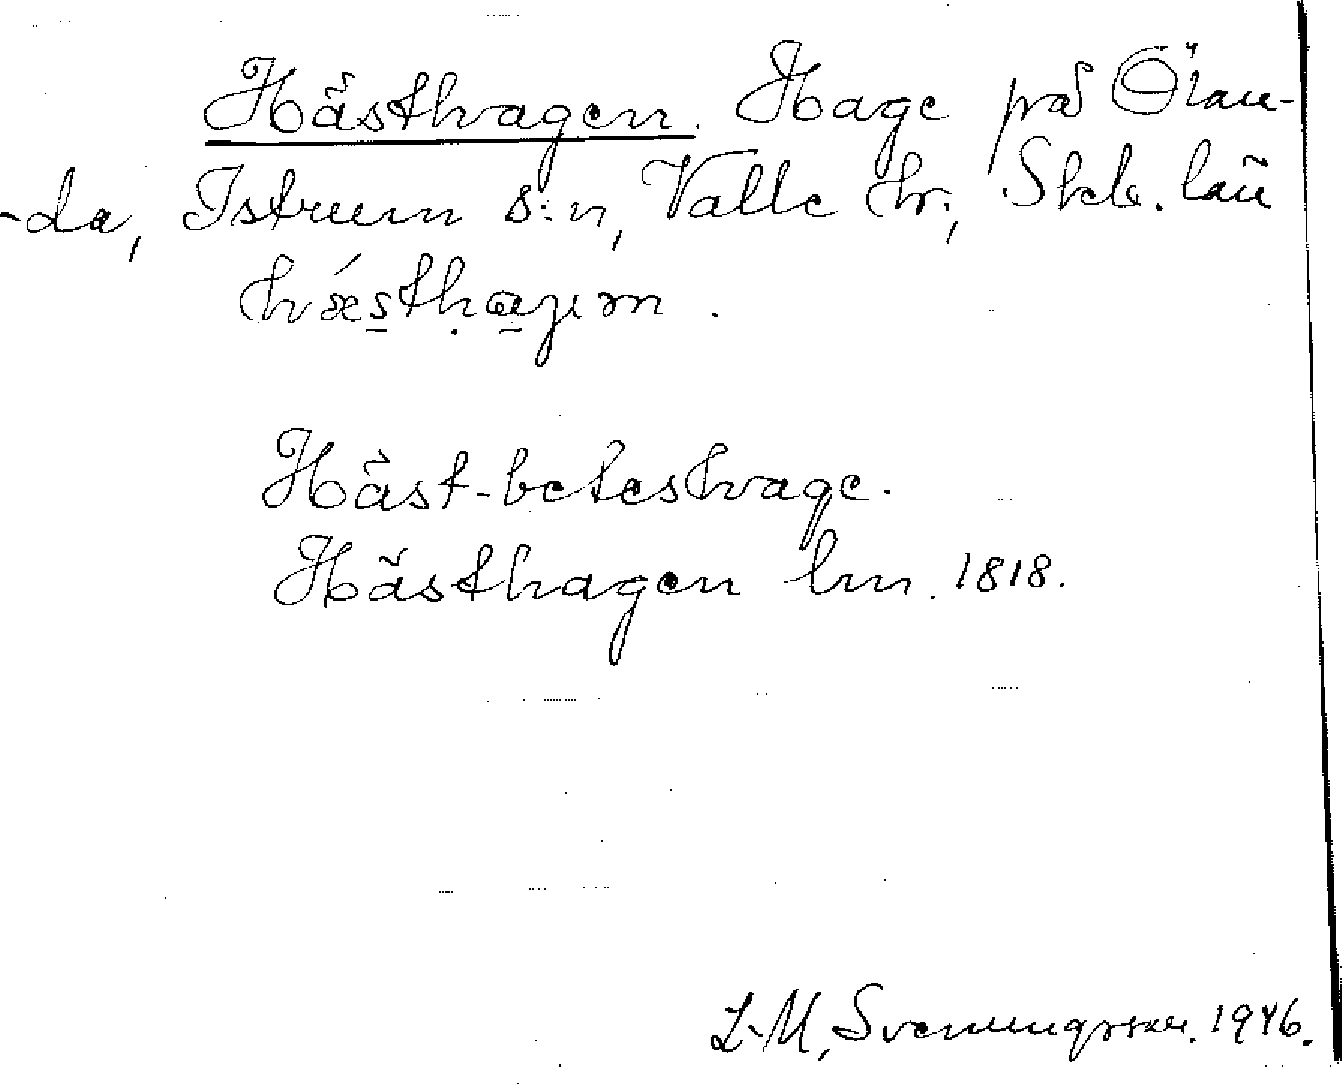 Hästhagen. Hage på Ölan-
-da, Istrum s:n, Valle hr, Skb. län
Häst-beteshage.
Hästhagen lm. 1818.
L-M, Svenungsson. 1946.